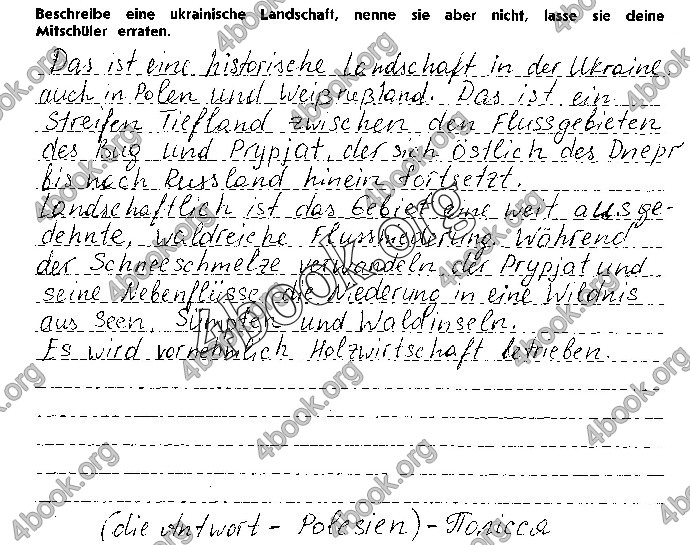 Beschreibe eine ukrainische Landschaft, nenne sie aber nicht, lasse sie deine
Mitschüler erraten.
Das ist eine historische Landschaft in der Ukraine,
auch in Polen und Weißrußland. Das ist ein
Streifen Tiefland zwischen den Flussgebieten
des Bug und Prypjat, der sich östlich des Dnepr
bis nach Russland hinein fortsetzt.
Landschaftlich ist das Gebiet eine weit ausge-
dehnte, waldreiche Flussniederung. Während
der Schneeschmelze verwandeln der Prypjat und
seine Nebenflüsse die Niederung in eine Wildnis
aus Seen, Sümpfen und Waldinseln.
Es wird vornehmlich Holzwirtschaft betrieben.
(die Antwort - Polesien) - Полісся
4book.org